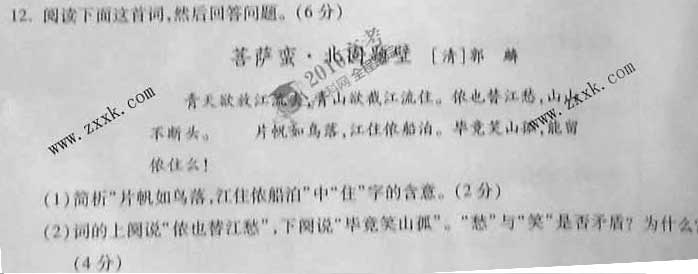 12. 阅读下面这首词,然后回答问题。(6分)
菩萨蛮·北固题壁 [清]郭 麟
青天欲放江流去,青山欲截江流住。侬也替江愁,山山
不断头。 片帆如鸟落,江住侬船泊。毕竟笑山孤,能留
侬住么!
(1)简析“片帆如鸟落,江住侬船泊”中“住”字的含意。(2分)
(2)词的上阕说“侬也替江愁”,下阕说“毕竟笑山孤”。“愁”与“笑”是否矛盾?为什么?
(4分)
www.zxxk.com
www.zxxk.com
www.zxxk.com